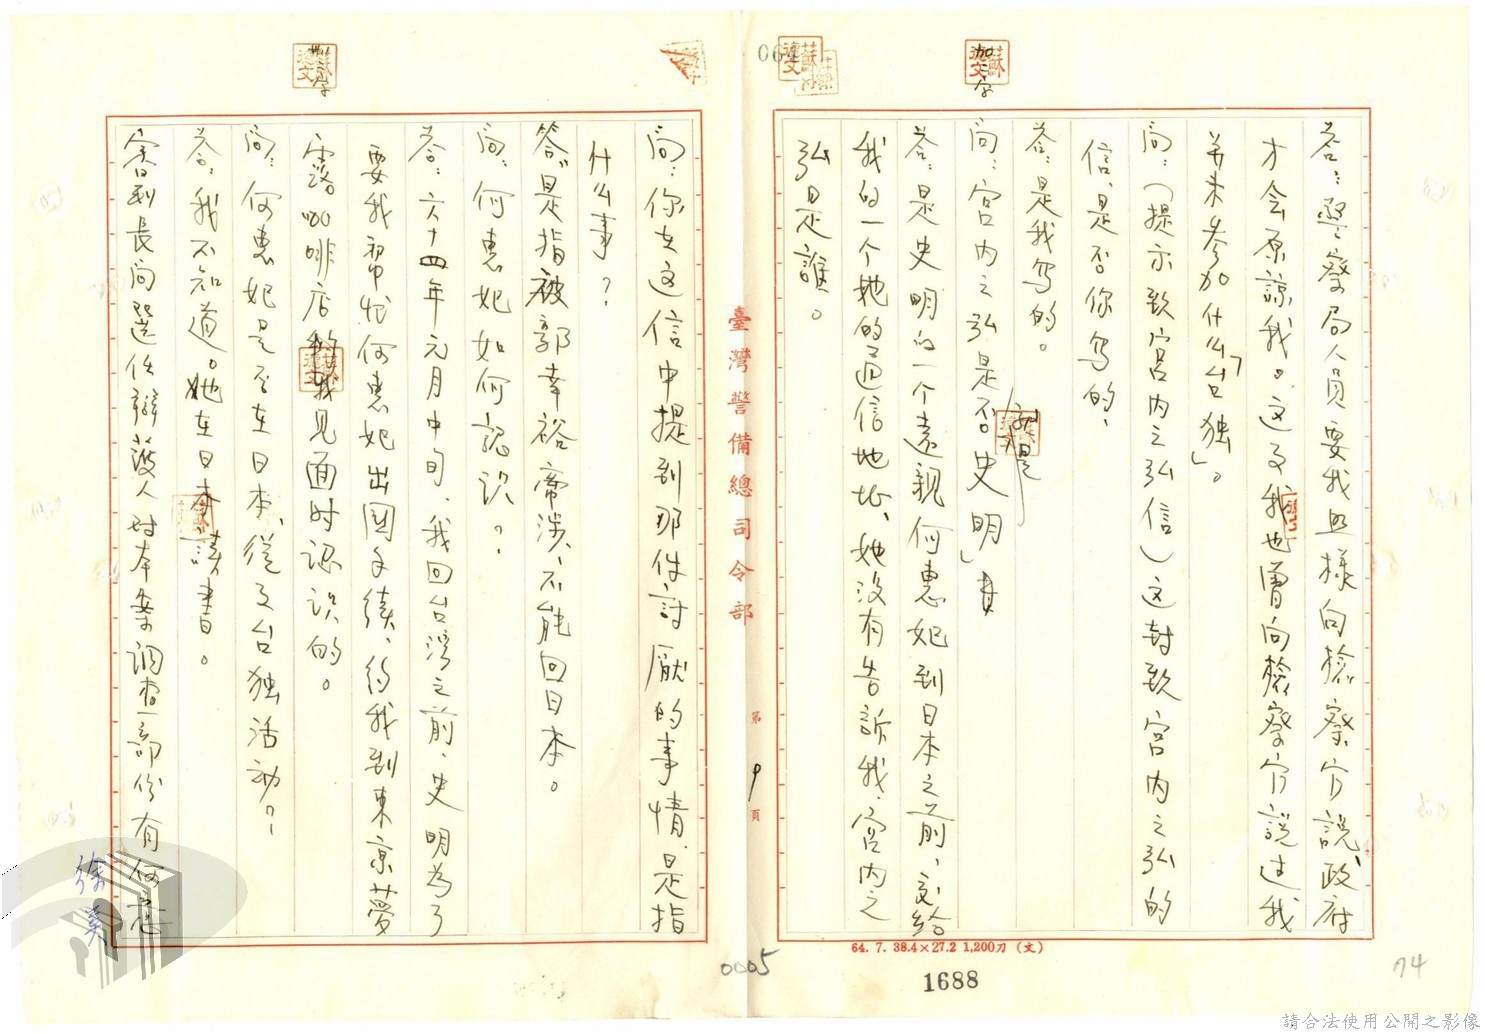 答：警察局人員要我照樣向檢察官說，政府
才会原諒我。這反我也曾向檢察官說过我
並未參加什么「台独」。
問：（提示致宮內之弘信）这封致宮內之弘的
信，是否你写的，
答：是我写的。
問：宮內之弘是否「史明」
答：是史明的一个遠親何惠妃到日本之前，交給
我的一个她的通信地址，她没有告訴我，宮內之
弘是誰。
問：你在这信中提到那件討厭的事情，是指
什么事？
答：是指被郭幸裕牽涉，不能回日本。
問：何惠妃如何認识？
答：六十四年元月中旬，我回台湾之前，史明为了
要我帮忙何惠妃出國手续，約我到東京夢
露咖啡店見面时認识的。
問：何惠妃是否在日本，從事台独活动？
答：我不知道。她在日本讀書。
審判長問選任辯護人对本案調查部份有何意
臺灣警備總司令部
第 9 頁
64. 7. 38.4×27.2 1,200刀（文）
064
加二字
0005
1688
74
請合法使用公開之影像